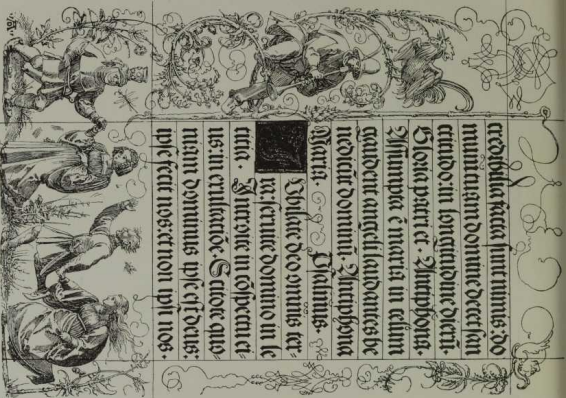 credibilia facta sunt nimis: do
mum tuam domine decet san
ctitudo: in longitudine dierū.
Gloria patri et. Antiphona.
Assumpta ē maria in celum
gaudent angeli laudantes be
nedicūt dominū. Antiphona
Maria. Psalmus.
Jubilate deo omnis ter=
ra seruite domino in le
ticia. Introite in cōspectu ei=
us in exultatiōe. Scitote quo=
niam dominus ipse est deus:
ipse fecit nos et non ipsi nos.